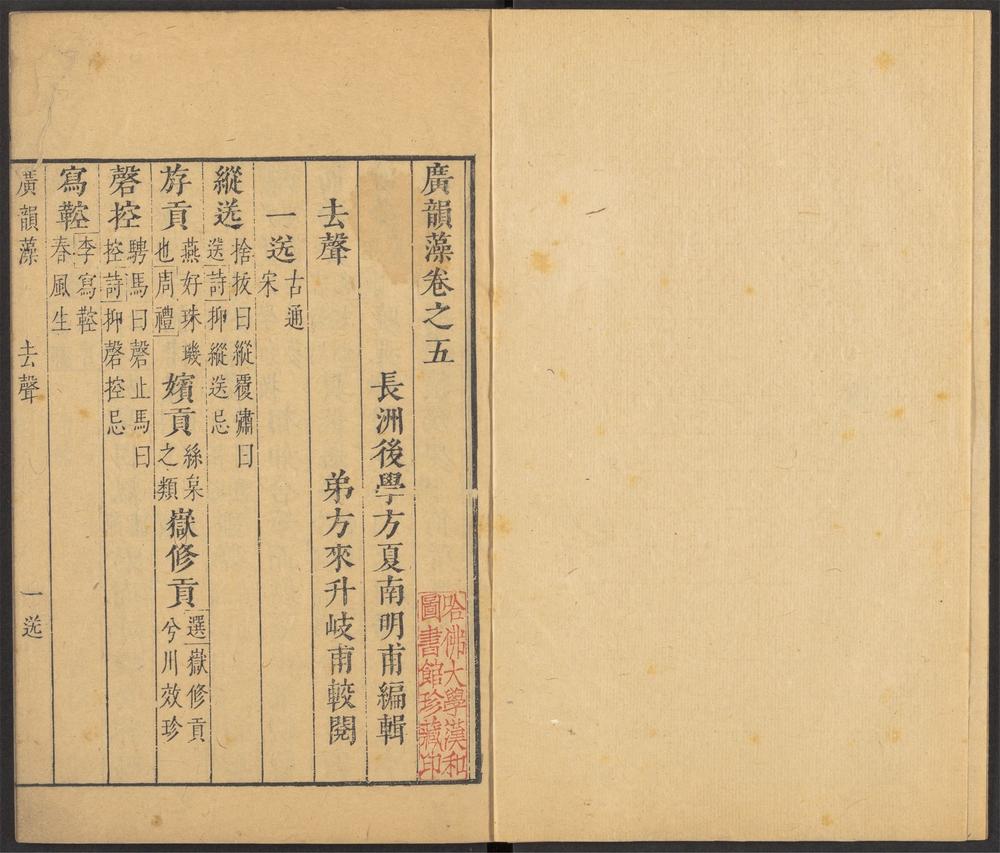 廣韻藻卷之五
哈佛大學漢和
圖書館珍藏印
長洲後學方夏南明甫編輯
去聲 弟方來升岐甫較閱
一送 古通宋
縱送 捨拔曰縱覆彇曰送詩抑縱送忌
荐貢 燕好珠璣也周禮 嬪貢 絲枲之類 嶽修貢 選嶽修貢兮川效珍
磬控 騁馬曰磬止馬曰控詩抑磬控忌
寫鞚 李寫鞚春風生
廣韻藻 去聲 一送